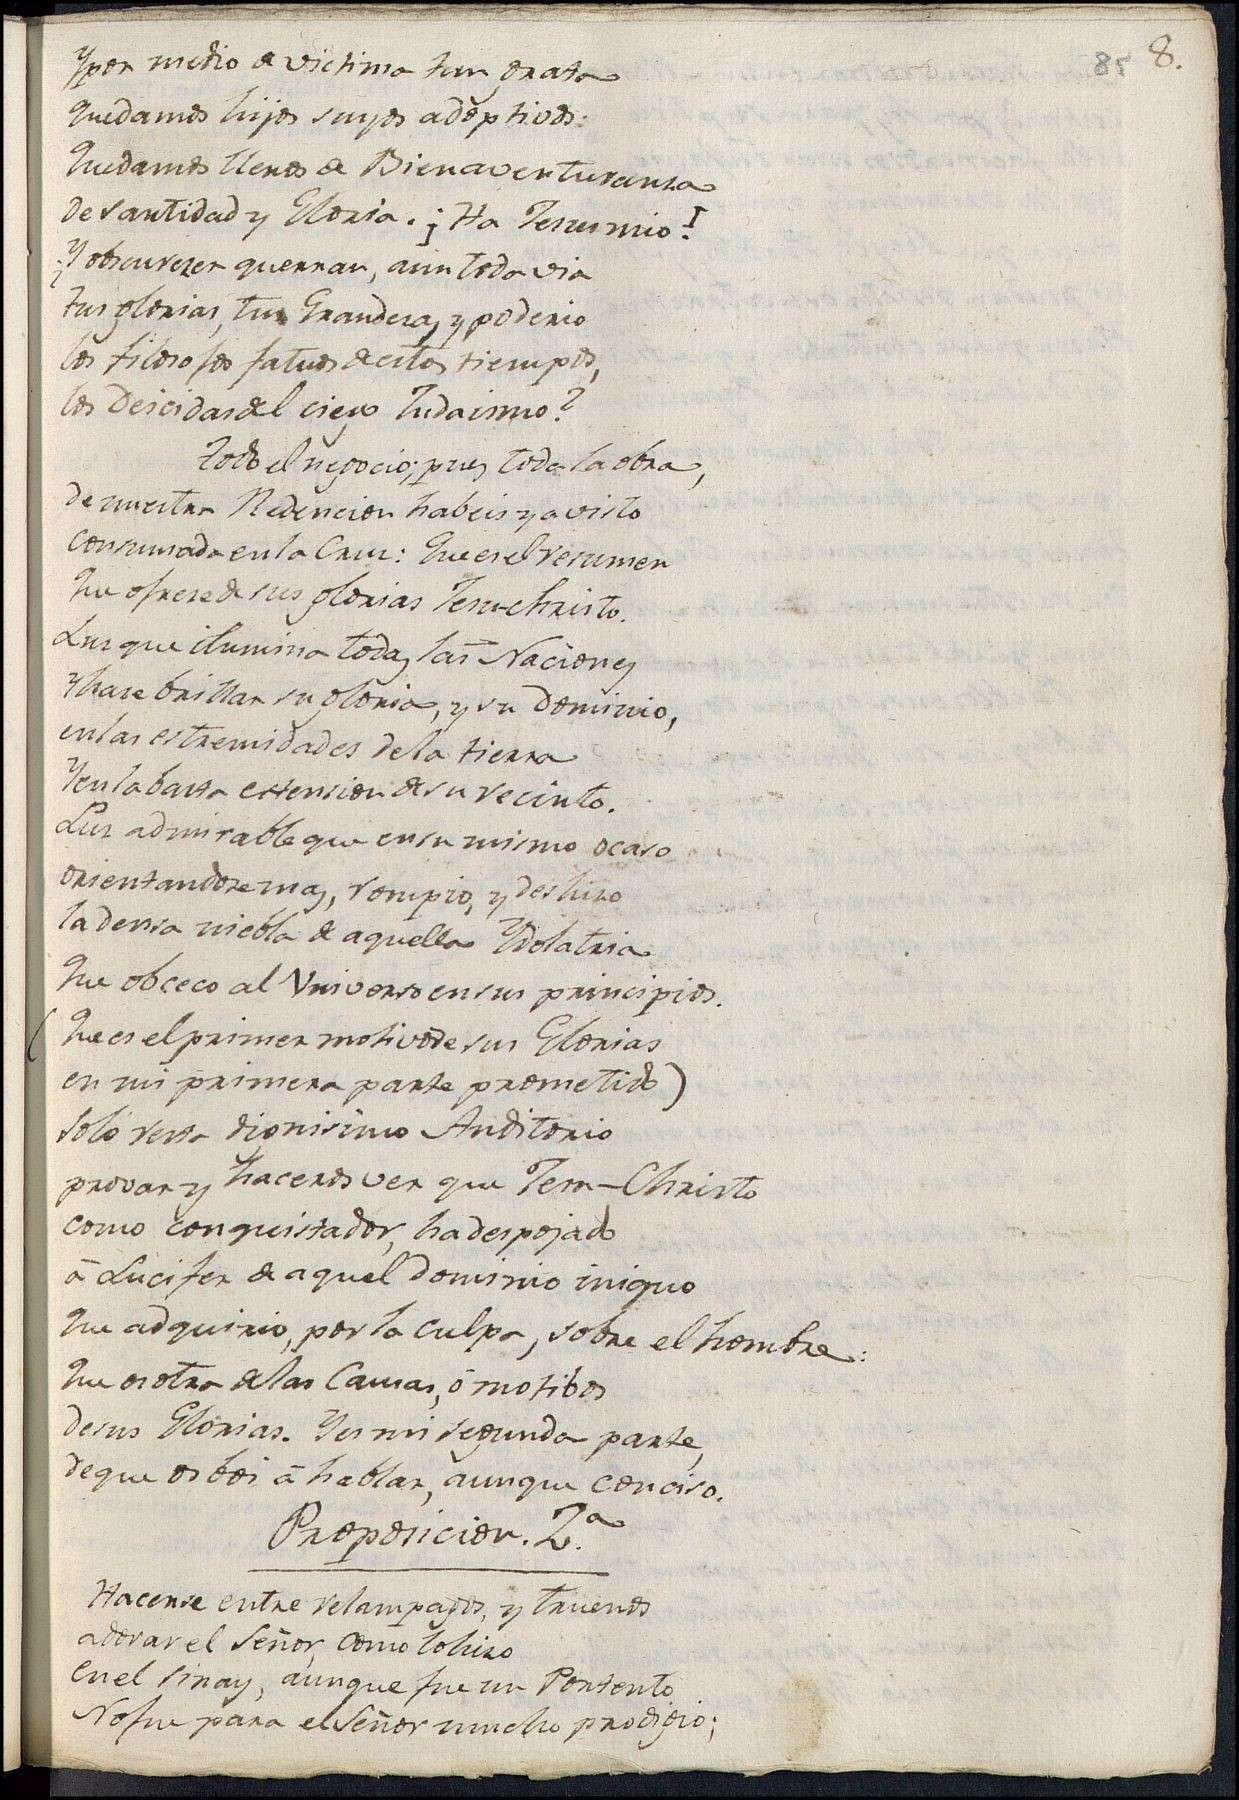 85 8.
Y por medio de victima tan grata
Quedamos hijos suyos adoptivos:
Quedamos llenos de Bienaventuranza
de santidad y Gloria. ¡Ha Jesus mio!
¿Y obscurezer querran, aun toda via
tus glorias, tus Grandezas y poderio
los filosofos fatuos de estos tiempos,
los Deicidas del ciego Judaismo?
todo el negocio; pues toda la obra,
de nuestra Redencion habeis ya visto
consumada en la Cruz: Que es el resumen
Que ofreze de sus glorias Jesu-christo.
Luz que ilumina todas las Naciones
y haze brillar su gloria, y su dominio,
en las estremidades de la tierra
Y en la basta estension de su recinto.
Luz admirable que en su mismo ocaso
orientandose mas, rompio, y deshizo
la densa niebla de aquella Ydolatria
Que obceco al Universo en sus principios.
(Que es el primer motivo de sus Glorias
en mi primera parte prometido)
solo resta dignisimo Auditorio
provar y haceros ver que Jesu-Christo
como conquistador, ha despojado
á Lucifer de aquel dominio iniquo
Que adquirio, por la culpa, sobre el hombre:
Que es otra de las Causas, ó motibos
de sus Glorias. Y es mi segunda parte,
de que os boi á hablar, aunque conciso.
Proposicion. 2.ª
Hacerse entre relampagos, y truenos
adorar el Señor, como lo hizo
en el Sinay, aunque fue un Portento
No fue para el Señor mucho prodigio;